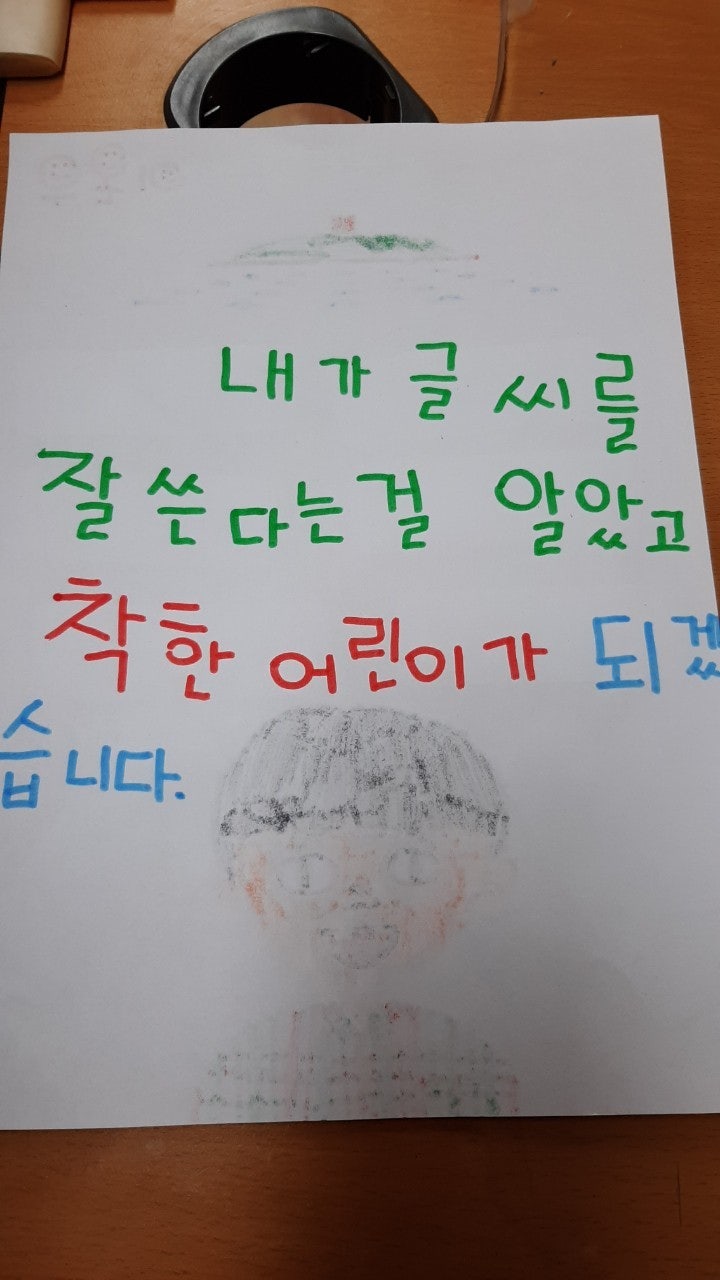 내가 글씨를
잘 쓴다는걸 알았고
착한 어린이가 되겠
습니다.